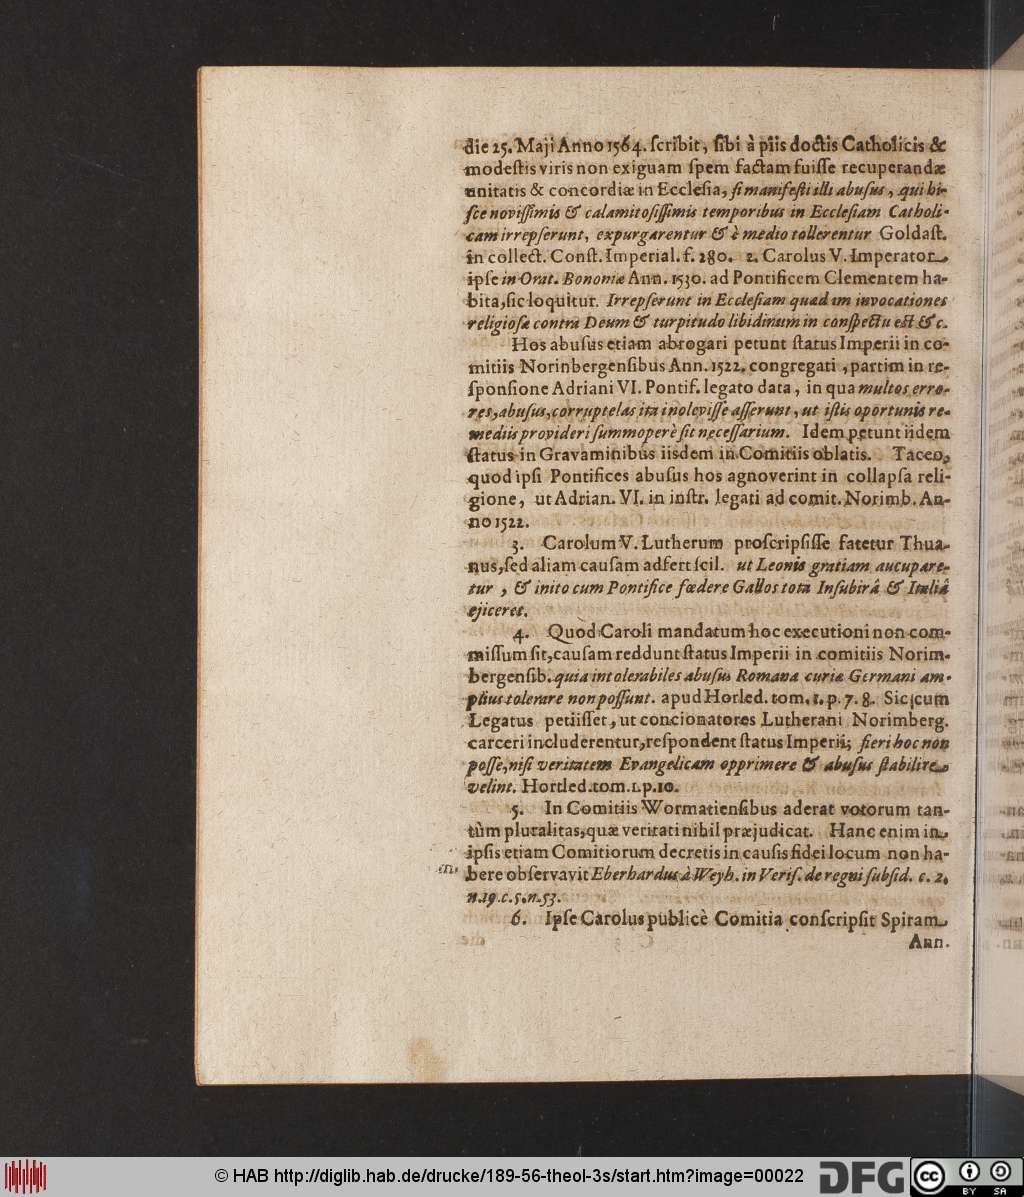 die 25. Maji Anno 1564. ſcribit, ſibi à piis doctis Catholicis &
modeſtis viris non exiguam ſpem factam fuiſſe recuperandæ
unitatis & concordiæ in Eccleſia, ſi manifeſti illi abuſus, qui hi-
ſce noviſſimis & calamitoſiſſimis temporibus in Eccleſiam Catholi-
cam irrepſerunt, expurgarentur & è medio tollerentur Goldaſt.
in collect. Conſt. Imperial. f. 280. 2. Carolus V. Imperator
ipſe in Orat. Bononiæ Ann. 1530. ad Pontificem Clementem ha-
bita, ſic loquitur. Irrepſerunt in Eccleſiam quædam invocationes
religioſæ contra Deum & turpitudo libidinum in conſpectu eſt & c.
Hos abuſus etiam abrogari petunt ſtatus Imperii in co-
mitiis Norinbergenſibus Ann. 1522. congregati, partim in re-
ſponſione Adriani VI. Pontif. legato data, in qua multos erro-
res, abuſus, corruptelas ita inoleviſſe aſſerunt, ut iſtis oportunis re-
mediis provideri ſummoperè ſit neceſſarium. Idem petunt iidem
ſtatus in Gravaminibus iisdem in Comitiis oblatis. Taceo,
quod ipſi Pontifices abuſus hos agnoverint in collapſa reli-
gione, ut Adrian. VI. in inſtr. legati ad comit. Norimb. An-
no 1522.
3. Carolum V. Lutherum proſcripſiſſe fatetur Thua-
nus, ſed aliam cauſam adfert ſcil. ut Leonis gratiam aucupare-
tur, & inito cum Pontifice fœdere Gallos tota Inſubirâ & Italiâ
ejiceret.
4. Quod Caroli mandatum hoc executioni non com-
miſſum ſit, cauſam reddunt ſtatus Imperii in comitiis Norim-
bergenſib. quia intolerabiles abuſus Romana curiæ Germani am-
plius tolerare non poſſunt. apud Horled. tom. 1. p. 7. 8. Sic cum
Legatus petiiſſet, ut concionatores Lutherani Norimberg.
carceri includerentur, reſpondent ſtatus Imperii; fieri hoc non
poſſe, niſi veritatem Evangelicam opprimere & abuſus ſtabilire
velint. Hortled. tom. 1. p. 10.
5. In Comitiis Wormatienſibus aderat votorum tan-
tùm pluralitas, quæ veritati nihil præjudicat. Hanc enim in
ipſis etiam Comitiorum decretis in cauſis fidei locum non ha-
bere obſervavit Eberhardus à Weyh. in Veriſ. de regni ſubſid. c. 2.
n. 19. c. 5. n. 53.
6. Ipſe Carolus publicè Comitia conſcripſit Spiram
Ann.
© HAB http://diglib.hab.de/drucke/189-56-theol-3s/start.htm?image=00022
DFG
cc
BY SA